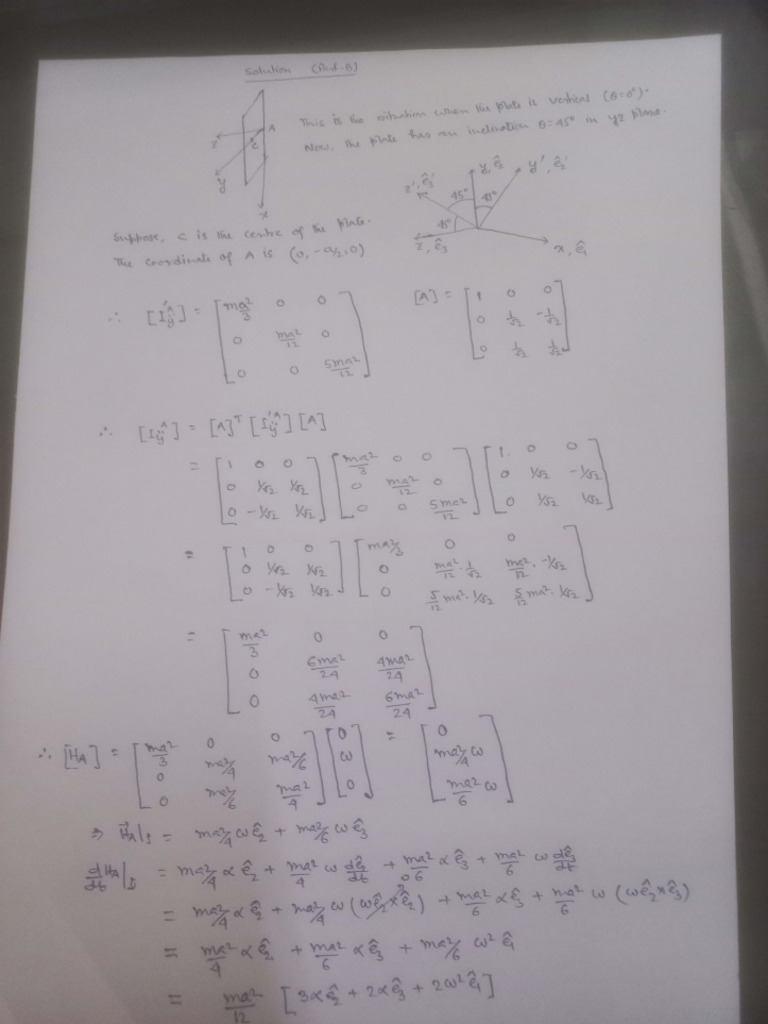 Solution (Prob. 6)
This is the situation when the plate is vertical (θ=0°).
Now, the plate has an inclination θ=45° in yz plane.
A
z
c
y
x
y, ê₂
y', ê₂'
z', ê₃'
45°
45°
45°
z, ê₃
x, ê₁
Suppose, c is the centre of the plate.
The coordinate of A is (0, -a/2, 0)
∴ [I'ᴬ_ij] = [ma²/3 0 0
0 ma²/12 0
0 0 5ma²/12]
[A] = [1 0 0
0 1/√2 -1/√2
0 1/√2 1/√2]
∴ [Iᴬ_ij] = [A]ᵀ [I'ᴬ_ij] [A]
= [1 0 0 ] [ma²/3 0 0 ] [1 0 0
0 1/√2 1/√2 ] [0 ma²/12 0 ] [0 1/√2 -1/√2
0 -1/√2 1/√2 ] [0 0 5ma²/12 ] [0 1/√2 1/√2]
= [1 0 0 ] [ma²/3 0 0
0 1/√2 1/√2 ] [0 ma²/12 · 1/√2 ma²/12 · -1/√2
0 -1/√2 1/√2 ] [0 5/12 ma² · 1/√2 5/12 ma² · 1/√2]
= [ma²/3 0 0
0 6ma²/24 4ma²/24
0 4ma²/24 6ma²/24]
∴ [H_A] = [ma²/3 0 0 ] [0 ] = [0
0 ma²/4 ma²/6 ] [ω ] [ma²/4 ω
0 ma²/6 ma²/4 ] [0 ] [ma²/6 ω]
⇒ H⃗_A|_I = ma²/4 ω ê₂ + ma²/6 ω ê₃
dH_A/dt|_I = ma²/4 α ê₂ + ma²/4 ω dê₂/dt + ma²/6 α ê₃ + ma²/6 ω dê₃/dt
= ma²/4 α ê₂ + ma²/4 ω (ωê₂×ê₂) 0 + ma²/6 α ê₃ + ma²/6 ω (ωê₂×ê₃)
= ma²/4 α ê₂ + ma²/6 α ê₃ + ma²/6 ω² ê₁
= ma²/12 [3αê₂ + 2αê₃ + 2ω²ê₁]